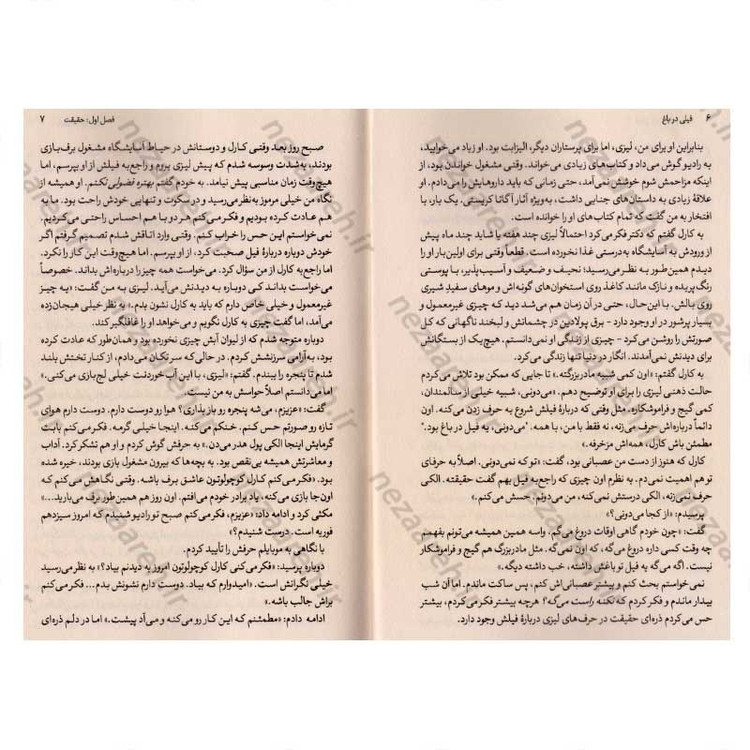 ۶ فیلی در باغ
بنابراین او برای من، لیزی، اما برای پرستاران دیگر، الیزابت بود. او زیاد می‌خوابید،
به رادیو گوش می‌داد و کتاب‌های زیادی می‌خواند. وقتی مشغول خواندن بود، از
اینکه مزاحمش شوم خوشش نمی‌آمد، حتی زمانی که باید داروهایش را می‌دادم. او
علاقهٔ زیادی به داستان‌های جنایی داشت، به‌ویژه آثار آگاتا کریستی. یک بار، با
افتخار به من گفت که تمام کتاب‌های او را خوانده است.
به کارل گفتم که دکتر فکر می‌کرد احتمالاً لیزی چند هفته یا شاید چند ماه پیش
از ورودش به آسایشگاه به درستی غذا نخورده است. قطعاً وقتی برای اولین‌بار او را
دیدم همین‌طور به نظر می‌رسید؛ نحیف و ضعیف و آسیب‌پذیر، با پوستی
رنگ‌پریده و نازک مانند کاغذ روی استخوان‌های گونه‌اش و موهای سفید شیری
روی بالش. با این‌حال، حتی در آن زمان هم می‌شد دید که چیزی غیرمعمول و
بسیار پرشور در او وجود دارد - برق پولادین در چشمانش و لبخند ناگهانی که کل
صورتش را روشن می‌کرد - چیزی از زندگی او نمی‌دانستم. هیچ‌یک از بستگانش
برای دیدنش نمی‌آمدند. انگار در دنیا تنها زندگی می‌کرد.
به کارل گفتم: «اون کمی شبیه مادربزرگته.» تا جایی که ممکن بود تلاش می‌کردم
حالت ذهنی لیزی را برای او توضیح دهم. «می‌دونی، شبیه خیلی از سالمندان،
کمی گیج و فراموشکاره، مثل وقتی که دربارهٔ فیلش شروع به حرف زدن می‌کنه. اون
دائماً درباره‌اش حرف می‌زنه، نه فقط با من، با همه. "می‌دونی، یه فیل در باغ بود."
مطمئن باش کارل، همه‌اش مزخرفه.»
کارل که هنوز از دست من عصبانی بود، گفت: «تو که نمی‌دونی. اصلاً به حرفای
تو اهمیت نمی‌دم. به نظرم اون چیزی که راجع به فیل بهم گفت حقیقته. الکی
حرف نمی‌زنه، الکی درستش نمی‌کنه، من می‌دونم. حسش می‌کنم.»
پرسیدم: «از کجا می‌دونی؟»
گفت: «چون خودم گاهی اوقات دروغ می‌گم. واسه همین همیشه می‌تونم بفهمم
چه وقت کسی داره دروغ می‌گه، که اون نمی‌گه. مثل مادربزرگ هم گیج و فراموشکار
نیست. اگه می‌گه یه فیل تو باغش داشته، خب داشته دیگه.»
نمی‌خواستم بحث کنم و بیشتر عصبانی‌اش کنم، پس ساکت ماندم. اما آن شب
بیدار ماندم و فکر کردم که نکنه راست می‌گه؟ هرچه بیشتر فکر می‌کردم، بیشتر
حس می‌کردم ذره‌ای حقیقت در حرف‌های لیزی دربارهٔ فیلش وجود دارد.
فصل اول: حقیقت ۷
صبح روز بعد وقتی کارل و دوستانش در حیاط آسایشگاه مشغول برف‌بازی
بودند، به‌شدت وسوسه شدم که پیش لیزی بروم و راجع به فیلش از او بپرسم، اما
هیچ‌وقت زمان مناسبی پیش نیامد. به خودم گفتم بهتره فضولی نکنم. او همیشه از
نگاه من خیلی مرموز به‌نظر می‌رسید و در سکوت و تنهایی خودش راحت بود. ما به
هم عادت کرده بودیم و فکر می‌کنم هر دو با هم احساس راحتی می‌کردیم.
نمی‌خواستم این حس را خراب کنم. وقتی وارد اتاقش شدم تصمیم گرفتم اگر
خودش دوباره دربارهٔ فیل صحبت کرد، از او بپرسم. اما هیچ‌وقت این کار را نکرد.
اما راجع به کارل از من سؤال کرد. می‌خواست همه چیز را درباره‌اش بداند. خصوصاً
می‌خواست بداند کی دوباره به دیدنش می‌آید. لیزی به من گفت: «یه چیز
غیرمعمول و خیلی خاص دارم که باید به کارل نشون بدم.» به نظر خیلی هیجان‌زده
می‌آمد، اما گفت چیزی به کارل نگویم و می‌خواهد او را غافلگیر کند.
دوباره متوجه شدم که از لیوان آبش چیزی نخورده بود و همان‌طور که عادت کرده
بود، به‌آرامی سرزنشش کردم. در حالی که سر تکان می‌دادم، از کنار تختش بلند
شدم تا پنجره را ببندم. گفتم: «لیزی، با این آب‌خوردنت خیلی لج‌بازی می‌کنی.»
اما می‌دانستم اصلاً حواسش به من نیست.
گفت: «عزیزم، می‌شه پنجره رو باز بذاری؟ هوا رو دوست دارم. دوست دارم هوای
تازه رو صورتم حس کنم. خنکم می‌کنه. اینجا خیلی گرمه. فکر می‌کنم بابت
گرمایش اینجا الکی پول هدر می‌دن.» به حرفش گوش کردم و او هم تشکر کرد. آداب
و معاشرتش همیشه بی‌نقص بود. به بچه‌ها که بیرون مشغول بازی بودند، خیره شده
بود. «فکر می‌کنم کارل کوچولوتون عاشق برف باشه. وقتی نگاهش می‌کنم که
اون‌جا بازی می‌کنه، یاد برادر خودم می‌افتم. اون روز هم همین‌طور برف می‌بارید...»
مکثی کرد و ادامه داد: «عزیزم، فکر می‌کنم صبح تو رادیو شنیدم که امروز سیزدهم
فوریه است. درست شنیدم؟»
با نگاهی به موبایلم حرفش را تأیید کردم.
دوباره پرسید: «فکر می‌کنی کارل کوچولوتون امروز به دیدنم بیاد؟» به نظر می‌رسید
خیلی نگرانش است. «امیدوارم که بیاد. دوست دارم نشونش بدم... فکر می‌کنم
براش جالب باشه.»
ادامه دادم: «مطمئنم که این کار رو می‌کنه و می‌آد پیشت.» اما در دلم ذره‌ای
nezaareh.ir